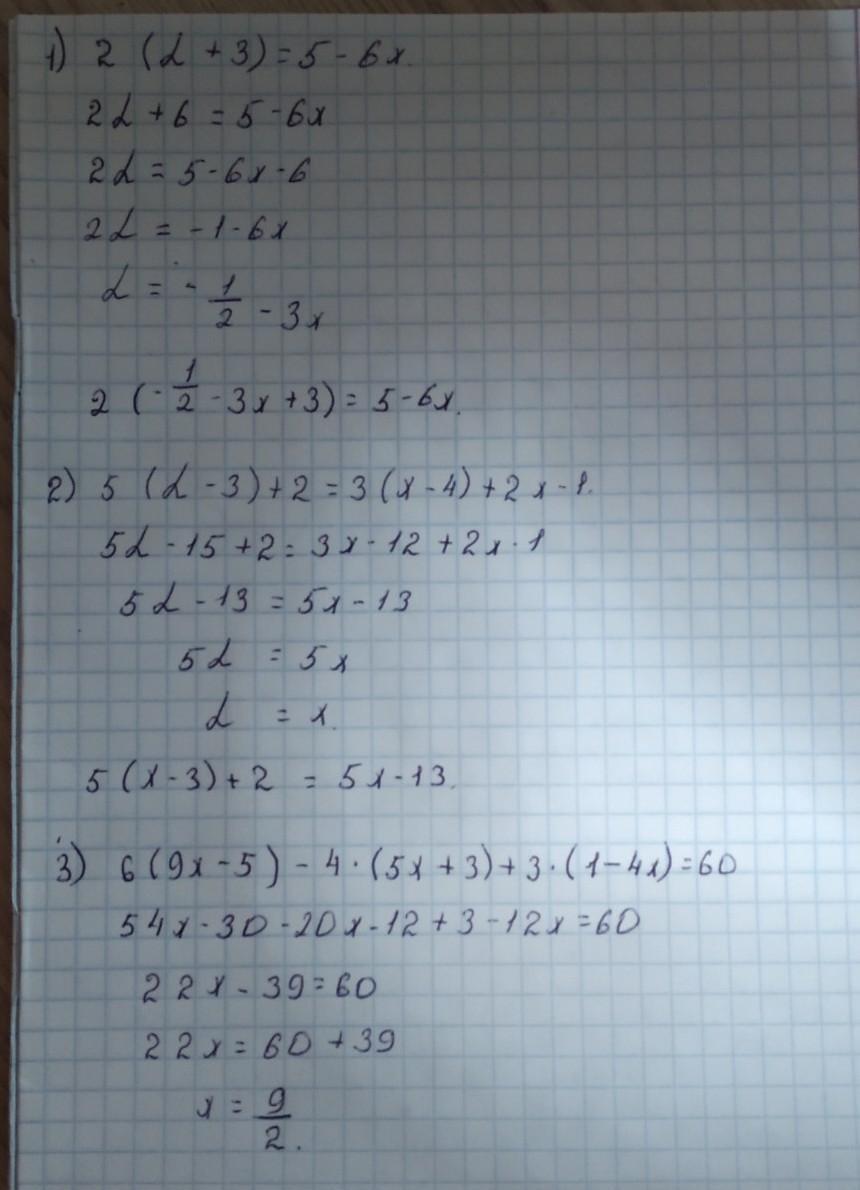 1) 2 (α + 3) = 5 - 6x.
2α + 6 = 5 - 6x
2α = 5 - 6x - 6
2α = -1 - 6x
α = - 1/2 - 3x
2 (- 1/2 - 3x + 3) = 5 - 6x.
2) 5 (α - 3) + 2 = 3 (x - 4) + 2x - 1.
5α - 15 + 2 = 3x - 12 + 2x - 1
5α - 13 = 5x - 13
5α = 5x
α = x.
5 (x - 3) + 2 = 5x - 13.
3) 6 (9x - 5) - 4 · (5x + 3) + 3 · (1 - 4x) = 60
54x - 30 - 20x - 12 + 3 - 12x = 60
22x - 39 = 60
22x = 60 + 39
x = 9/2.